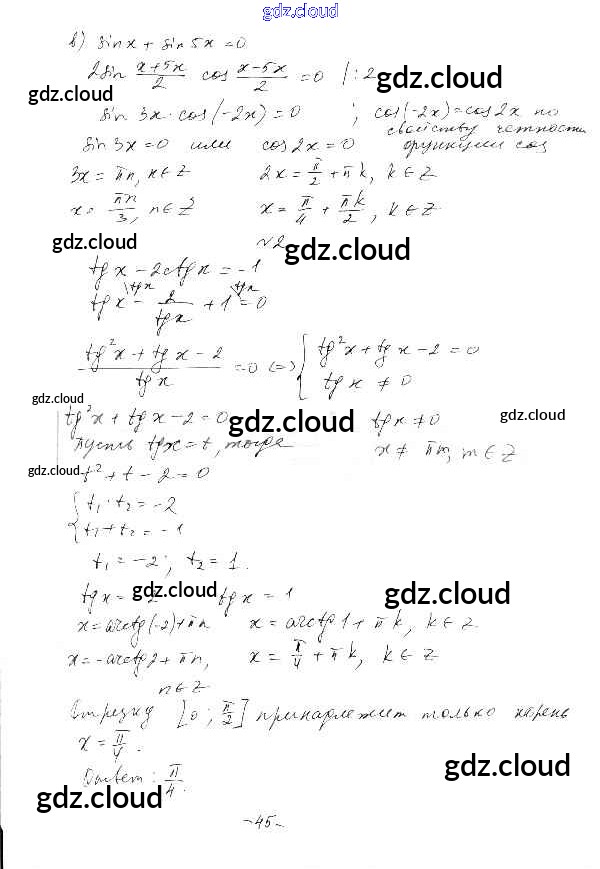 gdz.cloud
в) sin x + sin 5x = 0
2 sin (x+5x)/2 cos (x-5x)/2 = 0 | : 2
gdz.cloud
gdz.cloud
sin 3x · cos(-2x) = 0 ; cos(-2x) = cos 2x по
свойству четности
sin 3x = 0 или cos 2x = 0 функции cos
3x = πn, n ∈ Z 2x = π/2 + πk, k ∈ Z
x = πn/3, n ∈ Z x = π/4 + πk/2, k ∈ Z
gdz.cloud
№2
gdz.cloud
tg x - 2ctg x = -1
tg x \tg x - 2/tg x + 1 \tg x = 0
(tg²x + tg x - 2)/tg x = 0 <=> { tg²x + tg x - 2 = 0
tg x ≠ 0
gdz.cloud
gdz.cloud
gdz.cloud
tg²x + tg x - 2 = 0 tg x ≠ 0
Пусть tg x = t, тогда x ≠ πm, m ∈ Z
gdz.cloud
t² + t - 2 = 0
{ t₁ · t₂ = -2
t₁ + t₂ = -1
t₁ = -2; t₂ = 1.
gdz.cloud
gdz.cloud
tg x = -2 tg x = 1
x = arctg(-2) + πn x = arctg 1 + πk, k ∈ Z
x = -arctg 2 + πn, x = π/4 + πk, k ∈ Z
n ∈ Z
Отрезку [0; π/2] принадлежит только корень
x = π/4.
gdz.cloud
Ответ: π/4.
gdz.cloud
gdz.cloud
-45-